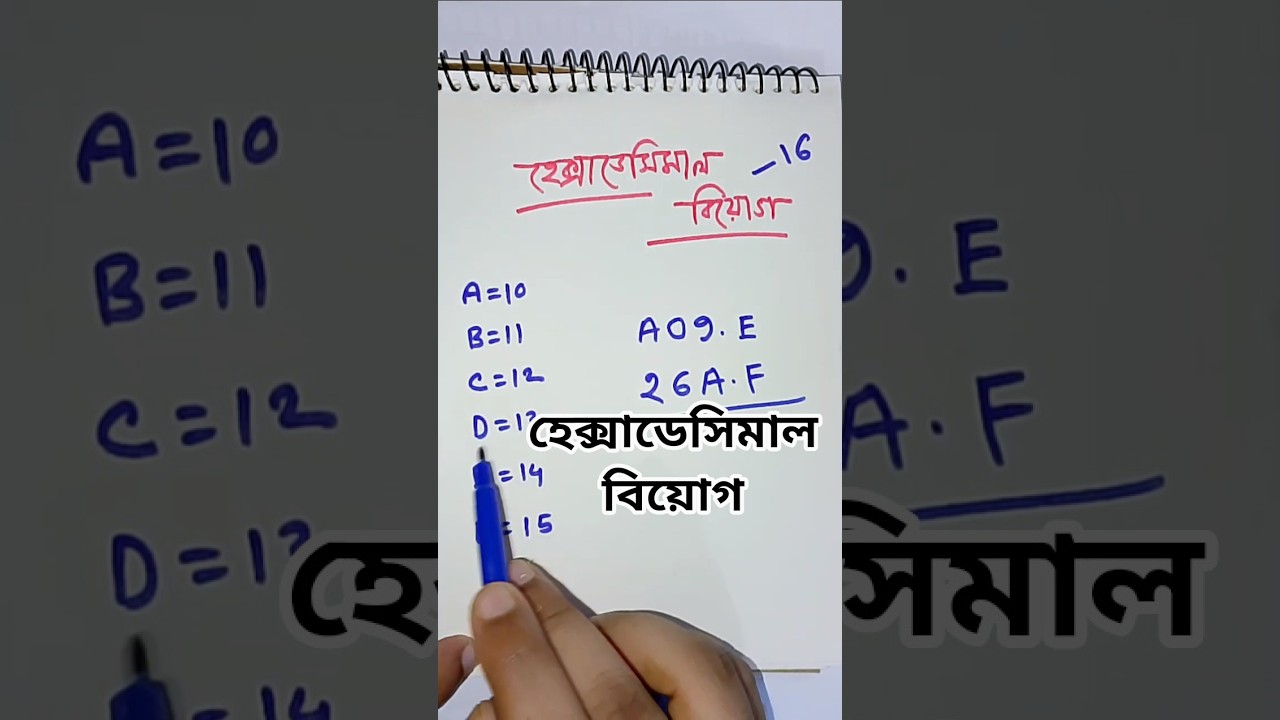 হেক্সাডেসিমাল -16
বিয়োগ
A=10
B=11
C=12
D=13
=14
=15
A09.E
26A.F
হেক্সাডেসিমাল
বিয়োগ